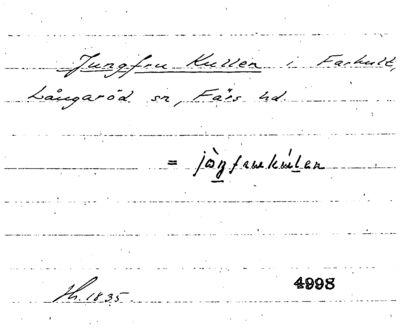 Jungfru Kullen i Farhult,
Långaröd sn, Färs hd.
= jòŋfrukúlen
Hh. 1835.
4998